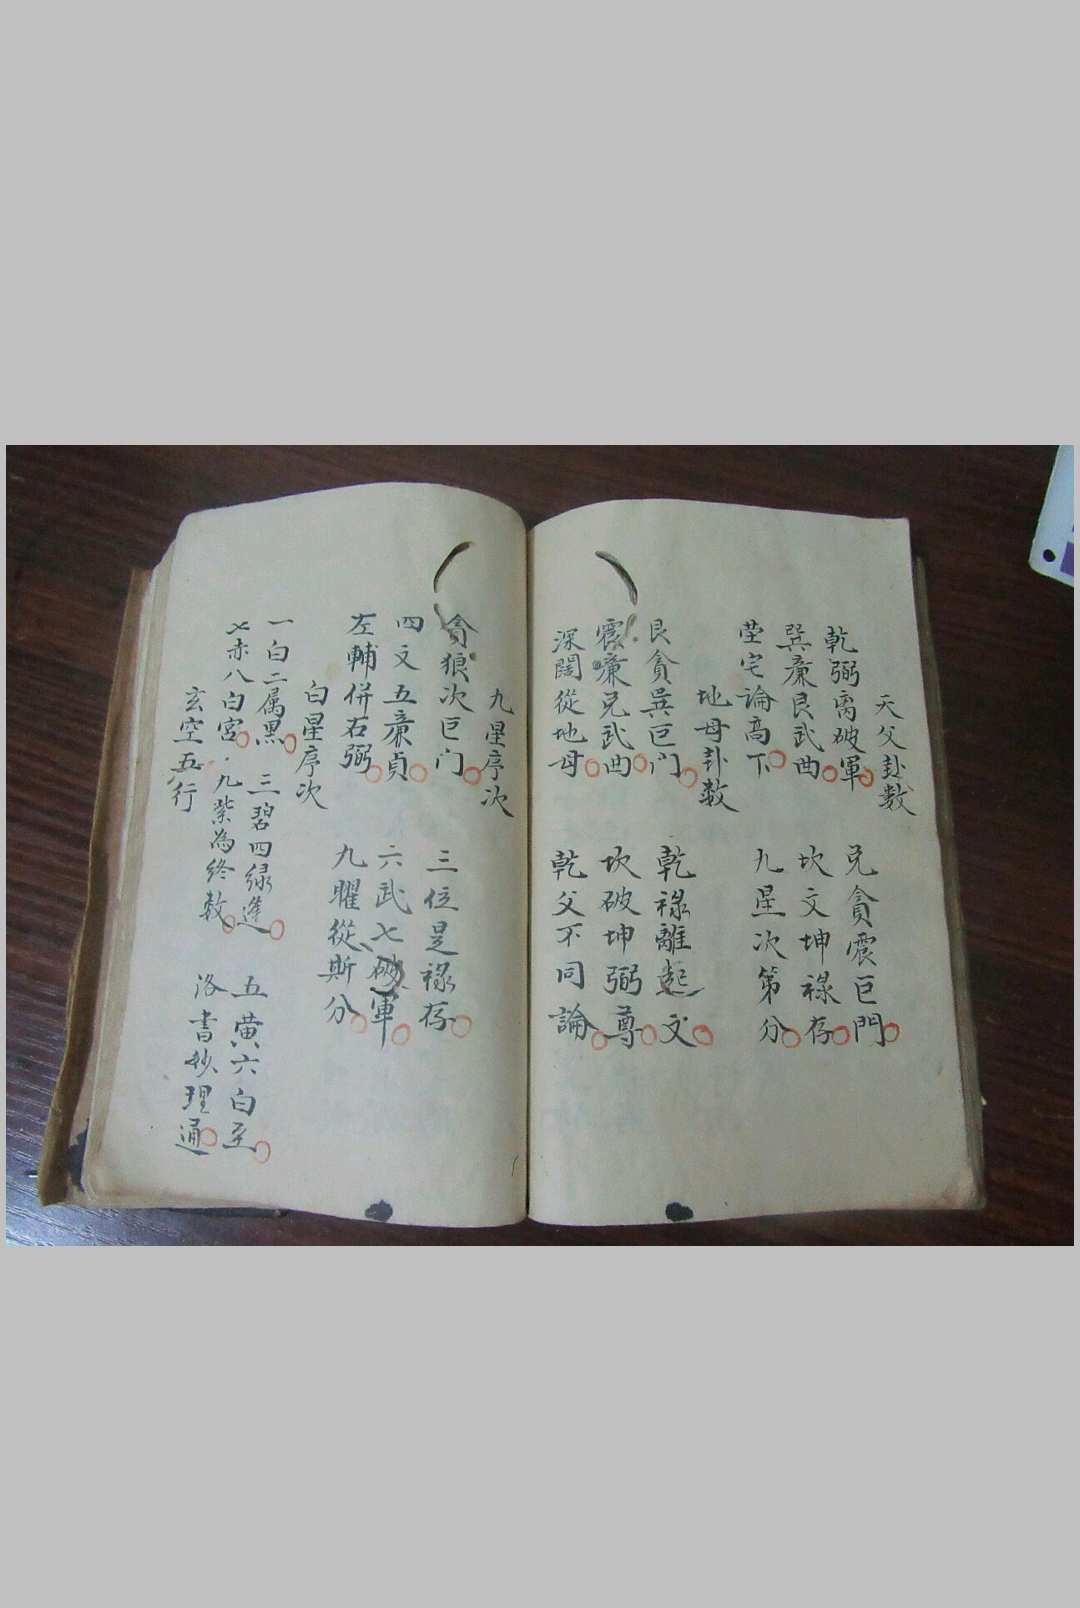 天父卦数
乾弼离破軍　兑貪震巨門
巽廉艮武曲　坎文坤禄存
塋宅論高下　九星次第分
地母卦数
艮貪巽巨门　乾祿離起文
震廉兑武曲　坎破坤弼尊
深闊從地母　乾父不同論
九星序次
貪狼次巨门　三位是祿存
四文五廉貞　六武七破軍
左輔併右弼　九曜從斯分
白星序次
一白二属黑　三碧四绿進　五黄六白至
七赤八白宫　九紫為终数　洛書妙理通
玄空五行